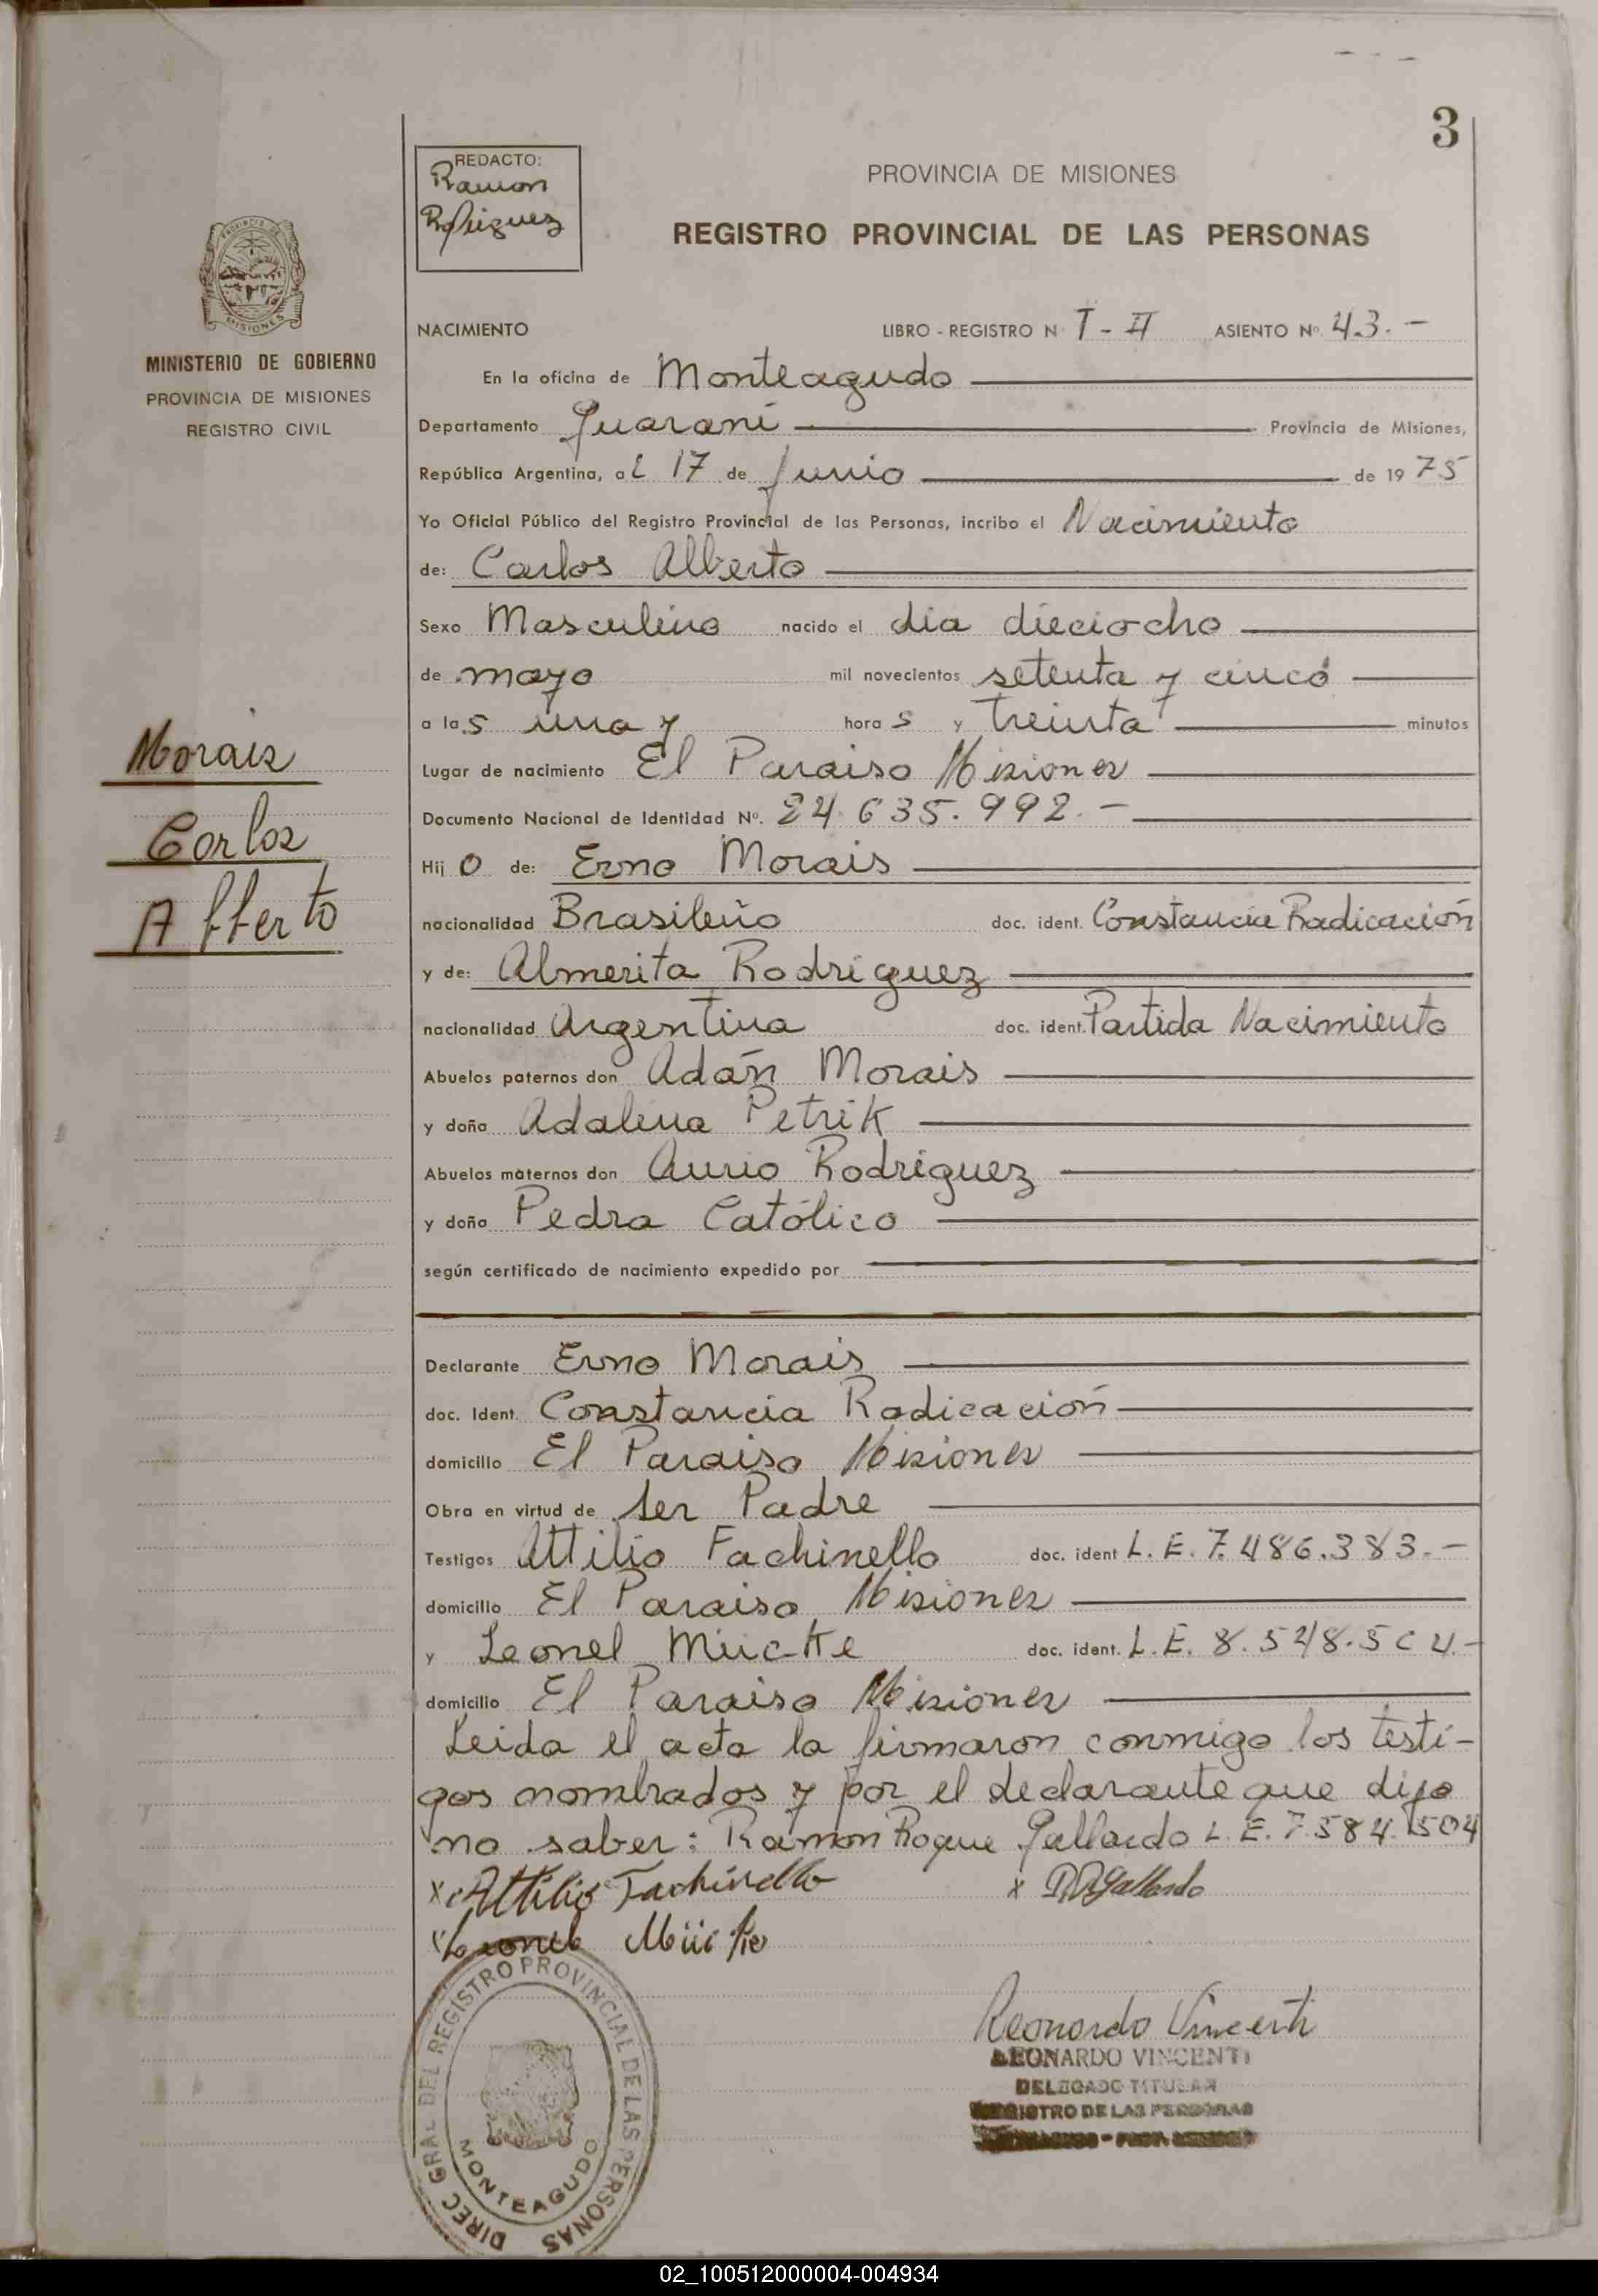 3
REDACTO:
Ramon
Rodriguez
PROVINCIA DE MISIONES
REGISTRO PROVINCIAL DE LAS PERSONAS
PROVINCIA DE
MISIONES
MINISTERIO DE GOBIERNO
PROVINCIA DE MISIONES
REGISTRO CIVIL
NACIMIENTO LIBRO - REGISTRO N° T - II ASIENTO N°. 43. -
En la oficina de Monteagudo
Departamento Guarani Provincia de Misiones,
República Argentina, al 17 de Junio de 1975
Yo Oficial Público del Registro Provincial de las Personas, incribo el Nacimiento
de: Carlos Alberto
Sexo Masculino nacido el dia dieciocho
de mayo mil novecientos setenta y cinco
a las una y horas y treinta minutos
Lugar de nacimiento El Paraiso Misiones
Documento Nacional de Identidad N°. 24.635.992. -
Hijo de: Erno Morais
nacionalidad Brasileño doc. ident. Constancia Radicación
y de: Almerita Rodriguez
nacionalidad Argentina doc. ident. Partida Nacimiento
Abuelos paternos don Adán Morais
y doña Adalina Petrik
Abuelos maternos don Aurio Rodriguez
y doña Pedra Católico
según certificado de nacimiento expedido por
Declarante Erno Morais
doc. Ident. Constancia Radicación
domicilio El Paraiso Misiones
Obra en virtud de Ser Padre
Testigos Attilio Fachinello doc. ident L. E. 7.486.383. -
domicilio El Paraiso Misiones
y Leonel Mücke doc. ident. L.E. 8.548.504. -
domicilio El Paraiso Misiones
Leida el acta la firmaron conmigo los testi-
gos nombrados y por el declarante que dijo
no saber: Ramon Roque Gallardo L.E. 7.584.504
x Attilio Fachinello x RRGallardo
x Leonel Mücke
Morais
Carlos
Alberto
Leonardo Vincenti
LEONARDO VINCENTI
DELEGADO TITULAR
REGISTRO DE LAS PERSONAS
DIREC GRAL DEL REGISTRO PROVINCIAL DE LAS PERSONAS
MONTEAGUDO
02_100512000004-004934